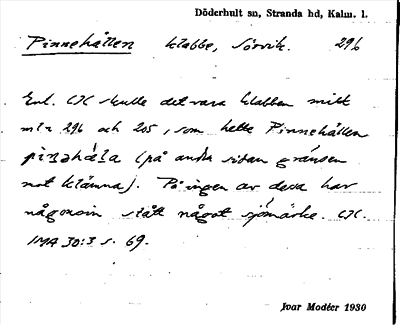 Döderhult sn, Stranda hd, Kalm. l.
Pinnehållen klabbe, Sörvik. 296
Enl. CJC skulle det vara klabben mitt
mln 296 och 205, som hette Pinnehållen
(på andra sidan gränsen
mot Klämna). På ingen av dessa har
någonsin stått något sjömärke. CJC.
IMA 30:3 s. 69.
Ivar Modéer 1930